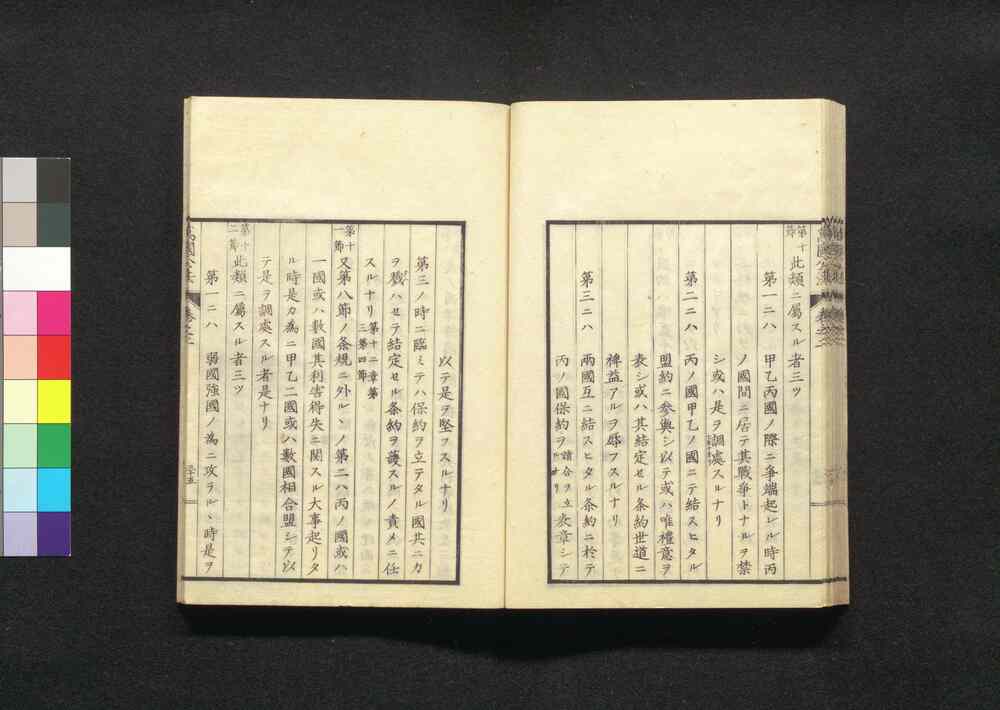 第十
節
此類ニ屬スル者三ツ
第一ニハ 甲乙丙國ノ際ニ爭端起レル時丙
ノ國間ニ居テ其戰爭トナルヲ禁
シ或ハ是ヲ調處スルナリ
第二ニハ 丙ノ國甲乙ノ國ニテ結スヒタル
盟約ニ參與シ以テ或ハ唯禮意ヲ
表シ或ハ其結定セル条約世道ニ
裨益アルヲ
フスルナリ
第三ニハ 兩國互ニ結スヒタル条約ニ於テ
丙ノ國保約ヲ
立
表章シテ
以テ是ヲ堅フスルナリ
第三ノ時ニ臨ミテハ保約ヲ立テタル國共ニカ
ヲ戮ハセテ結定セル条約ヲ護スルノ責メニ任
スルナリ
第十二章第
三第四節
第十
一節
又第八節ノ条規ニ外ルヽノ第二ハ丙ノ國或ハ
一國或ハ數國其利害得失ニ関スル大事起リタ
ル時是カ為ニ甲乙二國或ハ數國相合盟シテ以
テ是ヲ調處スル者是ナリ
第十
二節
此類ニ屬スル者三ツ
第一ニハ 弱國強國ノ為ニ攻ラルヽ時是ヲ
萬國公法
卷之三
三十五